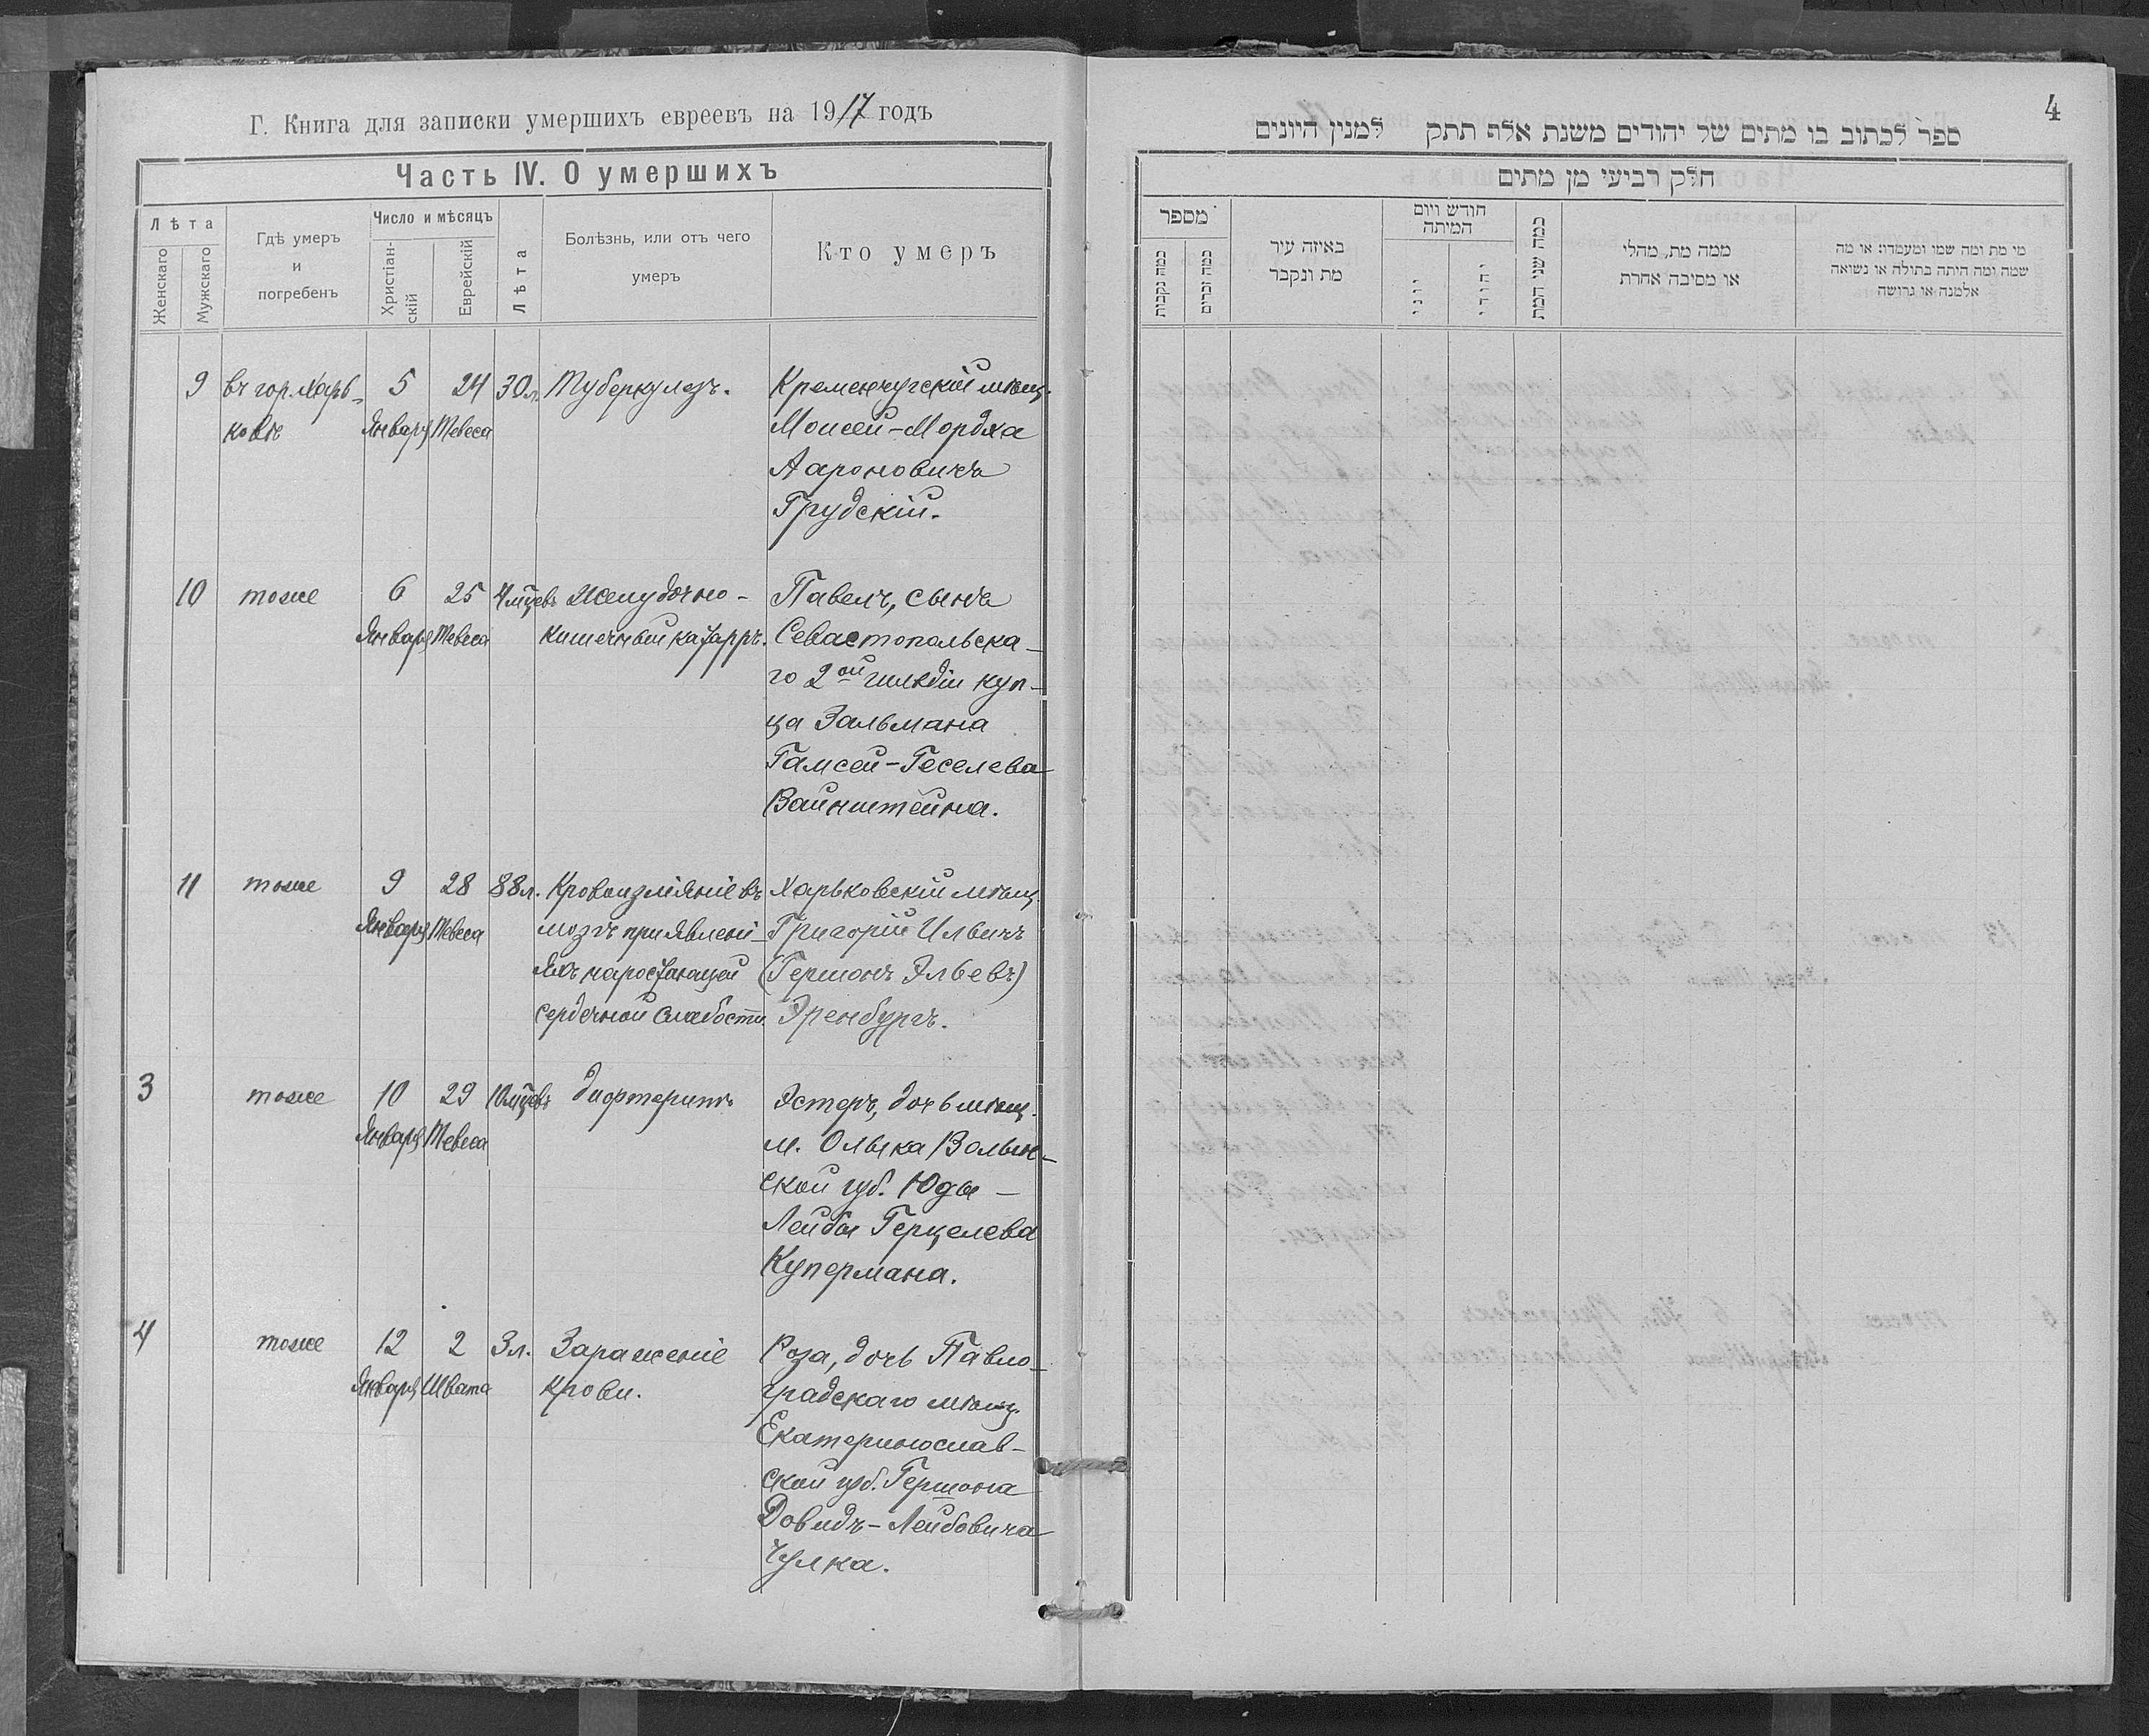 Г. Книга для записки умершихъ евреевъ на 1917 годъ
Часть IV. О умершихъ
Лѣта
Женскаго
Мужскаго
Гдѣ умеръ
и
погребенъ
Число и мѣсяцъ
Христіан-
скій
Еврейскій
Лѣта
Болѣзнь, или отъ чего
умеръ
Кто умеръ
9 въ гор. Харь- 5 24 30 л. Туберкулезъ. Кременчугскій мѣщ.
ковѣ Января Тевеса Моисей-Мордха
Аароновичъ
Грудскій.
10 тоже 6 25 4 мцевъ Желудочно- Павелъ, сынъ
Января Тевеса кишечный катарръ. Севастопольска-
го 2ой гильдіи куп-
ца Зальмана
Гамсей-Геселева
Вайнштейна.
11 тоже 9 28 88 л. Кровоизліяніе въ Харьковскій мѣщ.
Января Тевеса мозгъ при явлені- Григорій Ильичъ
яхъ наростающей (Гершонъ Эльевъ)
сердечной слабости. Эренбургъ.
3 тоже 10 29 10 мцевъ дифтеритъ Эстеръ, дочь мѣщ.
Января Тевеса м. Олыка Волын-
ской губ. Юды-
Лейбы Герцелева
Купермана.
4 тоже 12 2 3 л. Зараженіе Роза, дочь Павло-
Января Швата крови. градскаго мѣщ.
Екатеринослав-
ской губ. Гершона
Довидъ-Лейбовича
Чулка.
4
ספר לכתוב בו מתים של יהודים משנת אלף תתק למנין היונים
חלק רביעי מן מתים
מספר
כמה נקבות
כמה זכרים
באיזה עיר
מת ונקבר
חודש ויום
המיתה
יוני
יהודי
כמה שני המת
ממה מת, מהלי
או מסיבה אחרת
מי מת ומה שמו ומעמדו: או מה
שמה ומה היתה בתולה או נשואה
אלמנה או גרושה